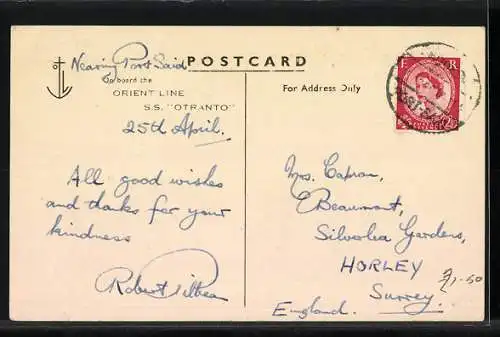 Nearing Port Said
POSTCARD
On board the
ORIENT LINE
S.S. "OTRANTO"
25th April.
All good wishes
and thanks for your
kindness
Robert
For Address Only
E R
PORT SAID
2½
Mrs. Capron,
"Beaumont,
Silverlea Gardens,
HORLEY
Surrey.
England.
£1-50